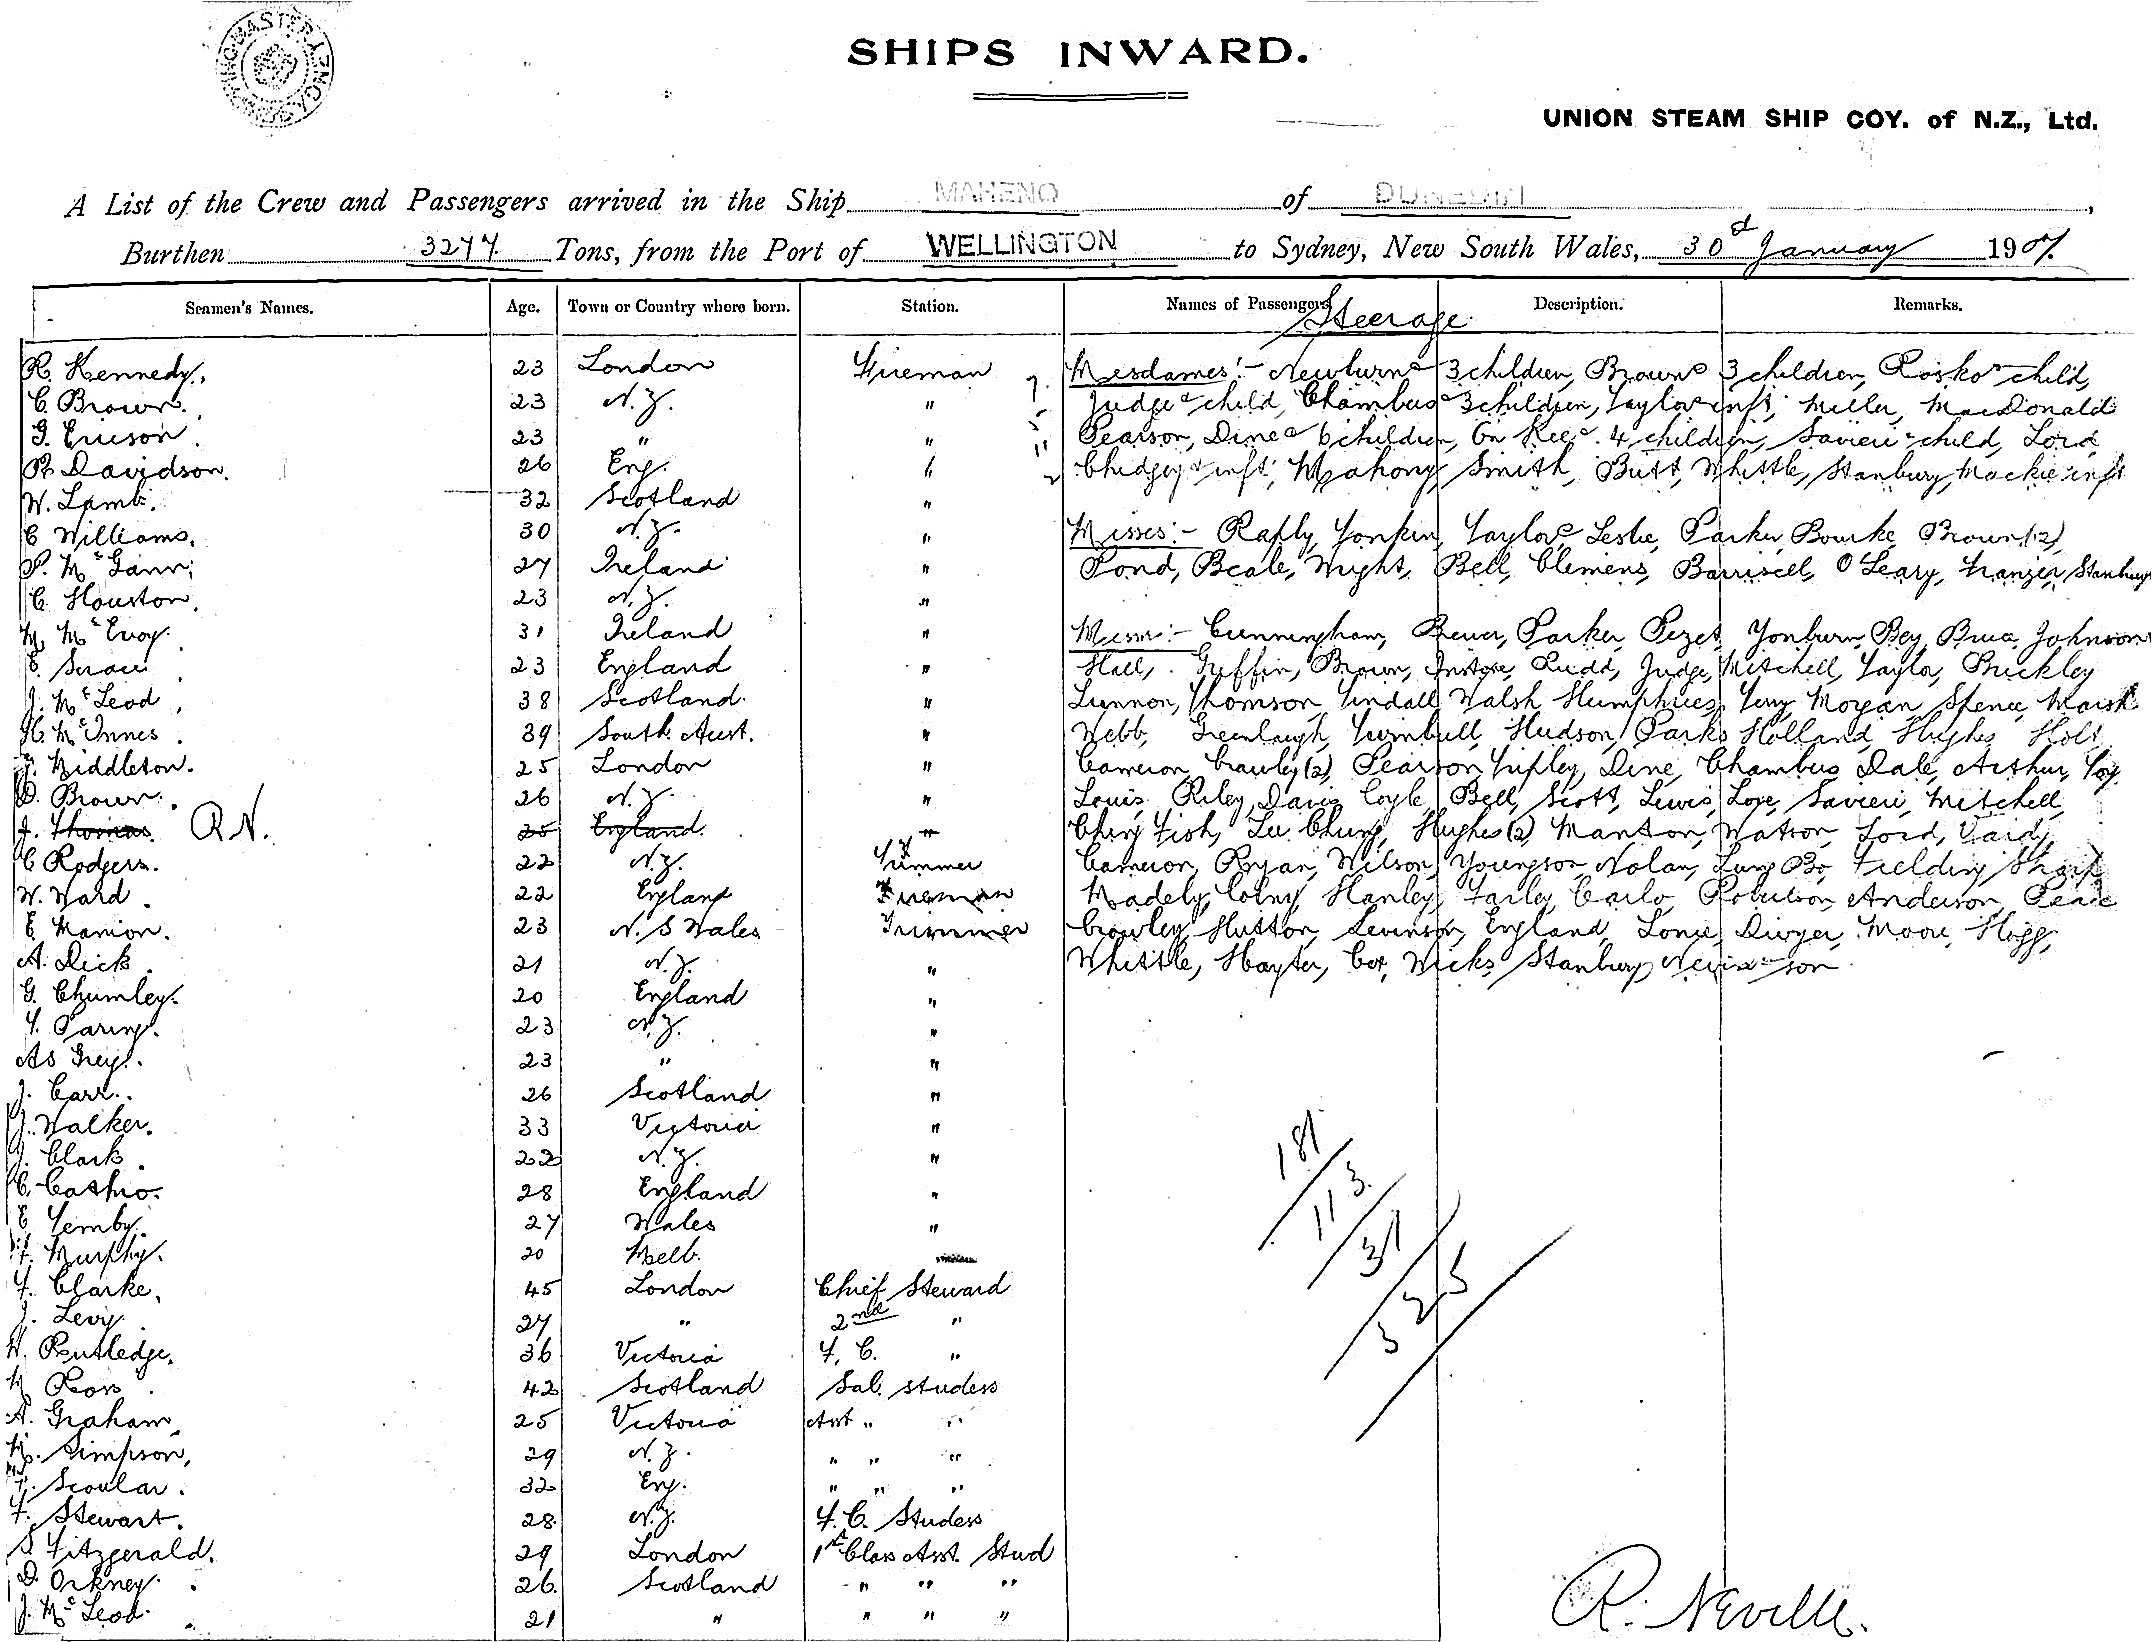 SHIPS INWARD.
UNION STEAM SHIP COY. of N.Z., Ltd.
A List of the Crew and Passengers arrived in the Ship MAHENO of DUNEDIN,
Burthen 3277 Tons, from the Port of WELLINGTON to Sydney, New South Wales, 30d January 1907.
Seamen's Names. Age. Town or Country where born. Station. Names of Passengers Description. Remarks.
Steerage
R. Kennedy. 23 London Fireman
C. Brown. 23 N.Z. "
G. Ericson. 23 " "
R. Davidson. 26 Eng. "
W. Lamb. 32 Scotland "
C Williams. 30 N.Z. "
P. McGann. 27 Ireland "
C. Houston. 23 N.Z. "
M. McEvoy. 31 Ireland "
23 England "
J. McLeod. 38 Scotland. "
H. McInnes. 39 South Aust. "
J. Middleton. 25 London "
D. Brown. 26 N.Z. "
J. Thomas. R.N. 25 England. "
C Rodgers. 22 N.Z. Trimmer
W. Ward. 22 England Fireman
E Manion. 23 N. S Wales Trimmer
A. Dick. 21 N.Z. "
G. Chumley. 20 England "
23 N.Z. "
As Grey. 23 " "
J. Carr. 26 Scotland "
J. Walker. 33 Victoria "
J. Clark. 22 N.Z. "
28 England "
E Temby. 27 Wales "
F. Murphy. 20 Melb.
F. Clarke. 45 London Chief Steward
J. Levy. 27 " 2nd "
W. Rutledge. 36 Victoria F. C. "
M Ross. 42 Scotland Sal. studess
A. Graham. 25 Victoria Asst " "
M. Simpson. 29 N.Z. " " "
Scoular. 32 Eng. " " "
F. Stewart. 28 N.Z. F. C. Studess
S Fitzgerald. 29 London 1st Class Asst. Stud
D. Orkney. 26 Scotland " " "
J. McLeod. 21 " " " "
Mesdames:- Newburn & 3 children, Brown & 3 children, Rosko & child,
Judge & child, Chambers & 3 children, Taylor & inft, Miller, MacDonald
Pearson, Dine & 6 children, On Kee & 4 children, Savieri & child, Lord,
Chidgey & inft, Mahony, Smith, Butt, Whittle, Stanbury, Mackie inft
Misses:- Yonkin, Taylor, Leslie, Parker, Bourke, Brown (2),
Pond, Beale, Wright, Bell, Clemens, Barriscell, O'Leary, Stanbury
Messrs:- Cunningham, Brewer, Parker, Pezet, Yonburn, Bey, Bruce, Johnson
Hall, Griffin, Brown, Instone, Rudd, Judge, Mitchell, Taylor, Brickley
Lunnon, Thomson, Tindall, Walsh, Humphries, Terry, Morgan, Spence, Marsh
Webb, Greenlaugh, Turnbull, Hudson, Parks, Holland, Hughes, Holt,
Cameron, Crawley (2), Pearson, Tripley, Dine, Chambers, Dale, Arthur, Foy
Louis, Riley, Davis, Coyle, Bell, Scott, Lewis, Love, Savieri, Mitchell,
Ching Fish, Lee Chung, Hughes (2), Manton, Watson, Lord, Vaidy,
Cameron, Ryan, Wilson, Youngson, Nolan, Lung Bo, Fielding, Sharp
Madely, Colny, Hanley, Farley, Carlo, Robertson, Anderson, Pearce
Crowley, Hutton, Levinson, England, Lonie, Dwyer, Moore, Hogg,
Whittle, Hayter, Cox, Wicks, Stanbury, Nevin & son
181
113
31
325
R. Neville.